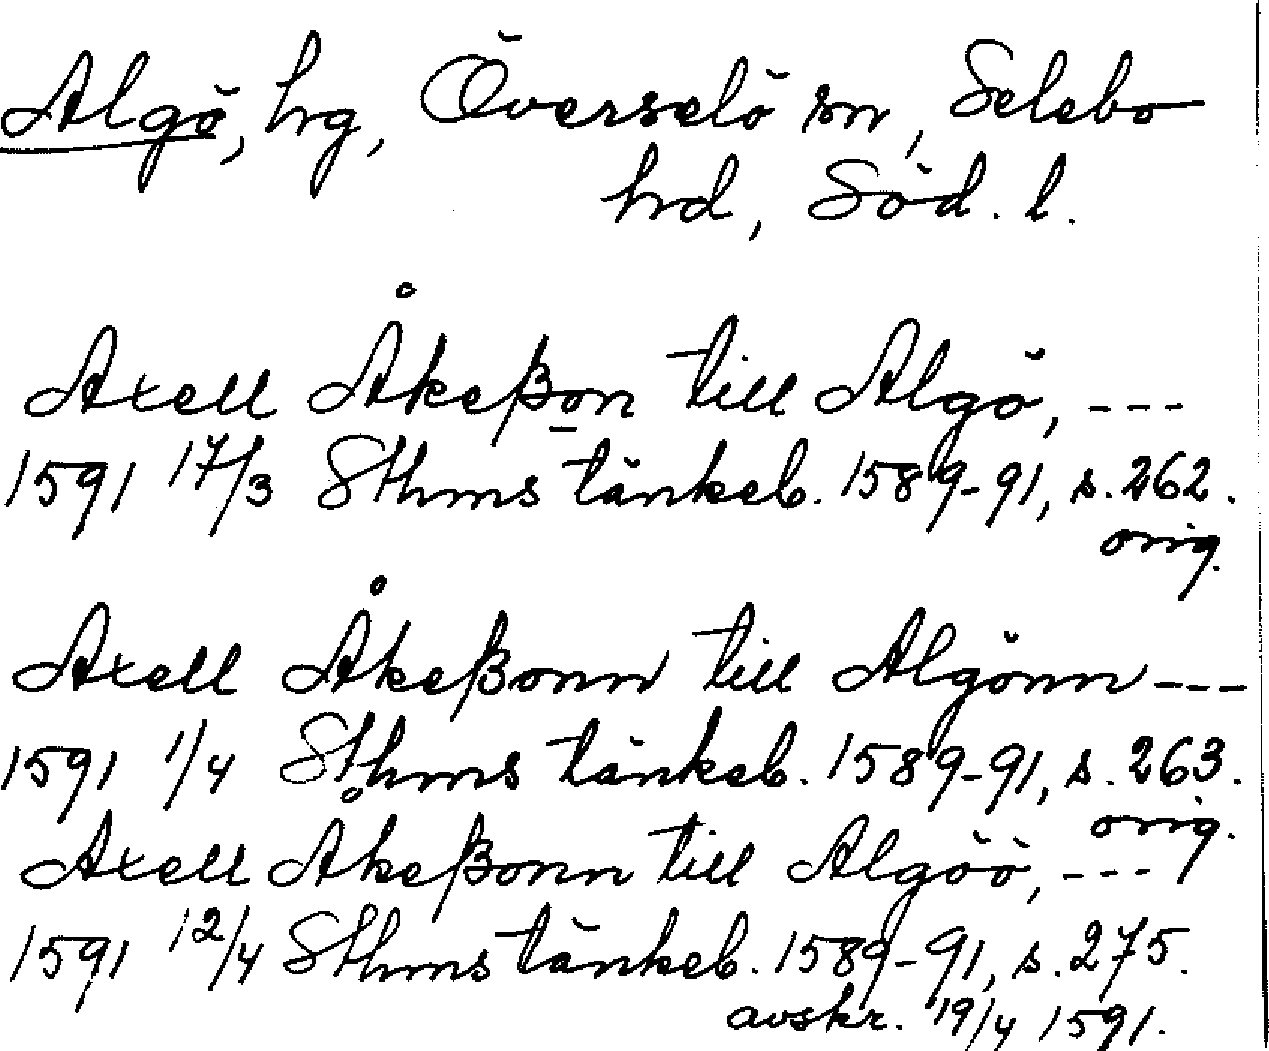 Algö, hg, Överselö sn, Selebo
hrd, Söd. l.
Axell Åkeßon till Algö, ---
1591 17/3 Sthms tänkeb. 1589-91, s. 262.
orig.
Axell Åkeßonn till Algönn ---
1591 1/4 Sthms tänkeb. 1589-91, s. 263.
orig.
Axell Åkeßonn till Algöö, ---
1591 12/4 Sthms tänkeb. 1589-91, s. 275.
avskr. 19/4 1591.